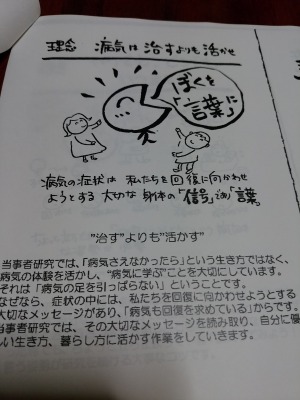 理念 病気は 治すよりも 活かせ
ぼくを
「言葉」に
病気の症状は 私たちを回復に向かわせ
ようとする 大切な 身体の「信号」であり「言葉」
"治す"よりも"活かす"
当事者研究では、「病気さえなかったら」という生き方ではなく、
病気の体験を活かし、"病気に学ぶ"ことを大切にしています。
それは「病気の足を引っぱらない」ということです。
なぜなら、症状の中には、私たちを回復に向かわせようとする
大切なメッセージがあり、「病気も回復を求めている」からです。
当事者研究では、その大切なメッセージを読み取り、自分に優
しい生き方、暮らし方に活かす作業をしていきます。